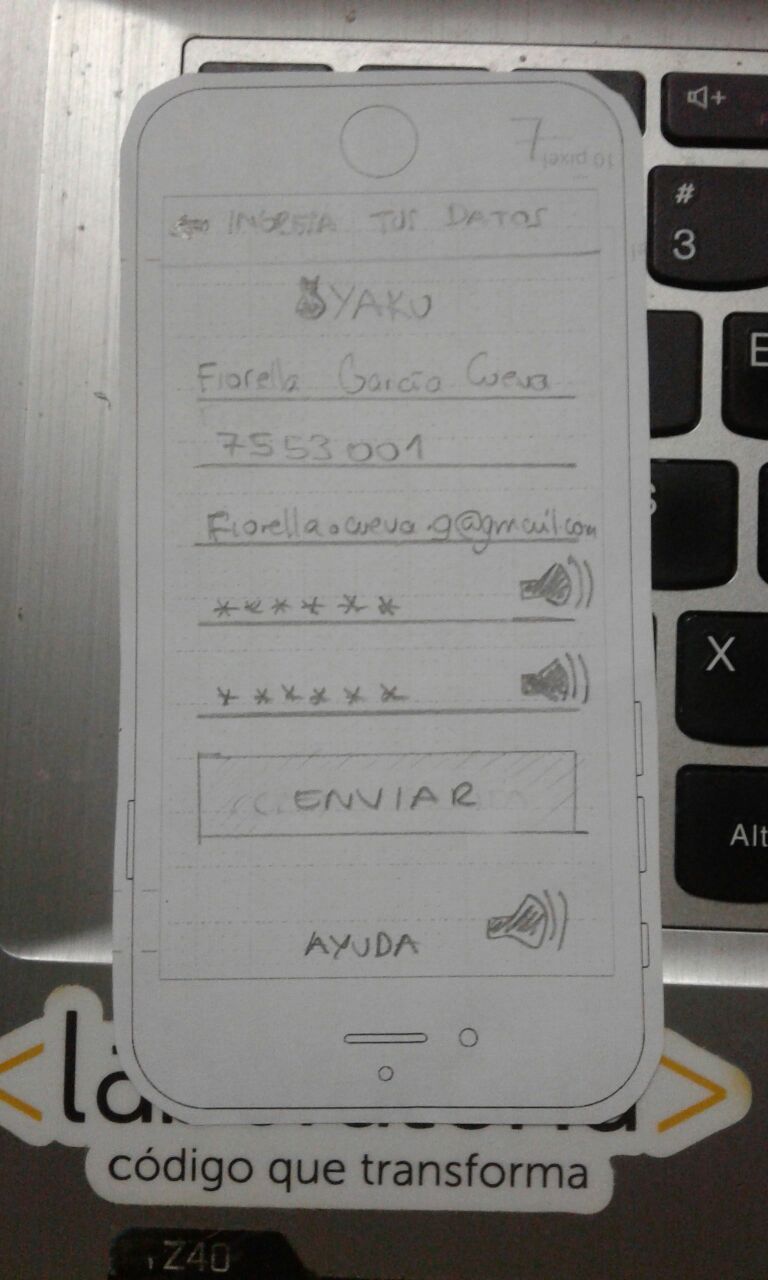 7
10 pixel
INGRESA TUS DATOS
YAKU
Fiorella García Cueva
7553001
Fiorella.cueva.g@gmail.com
******
******
ENVIAR
AYUDA
#
3
E
S
X
Alt
código que transforma
Z40